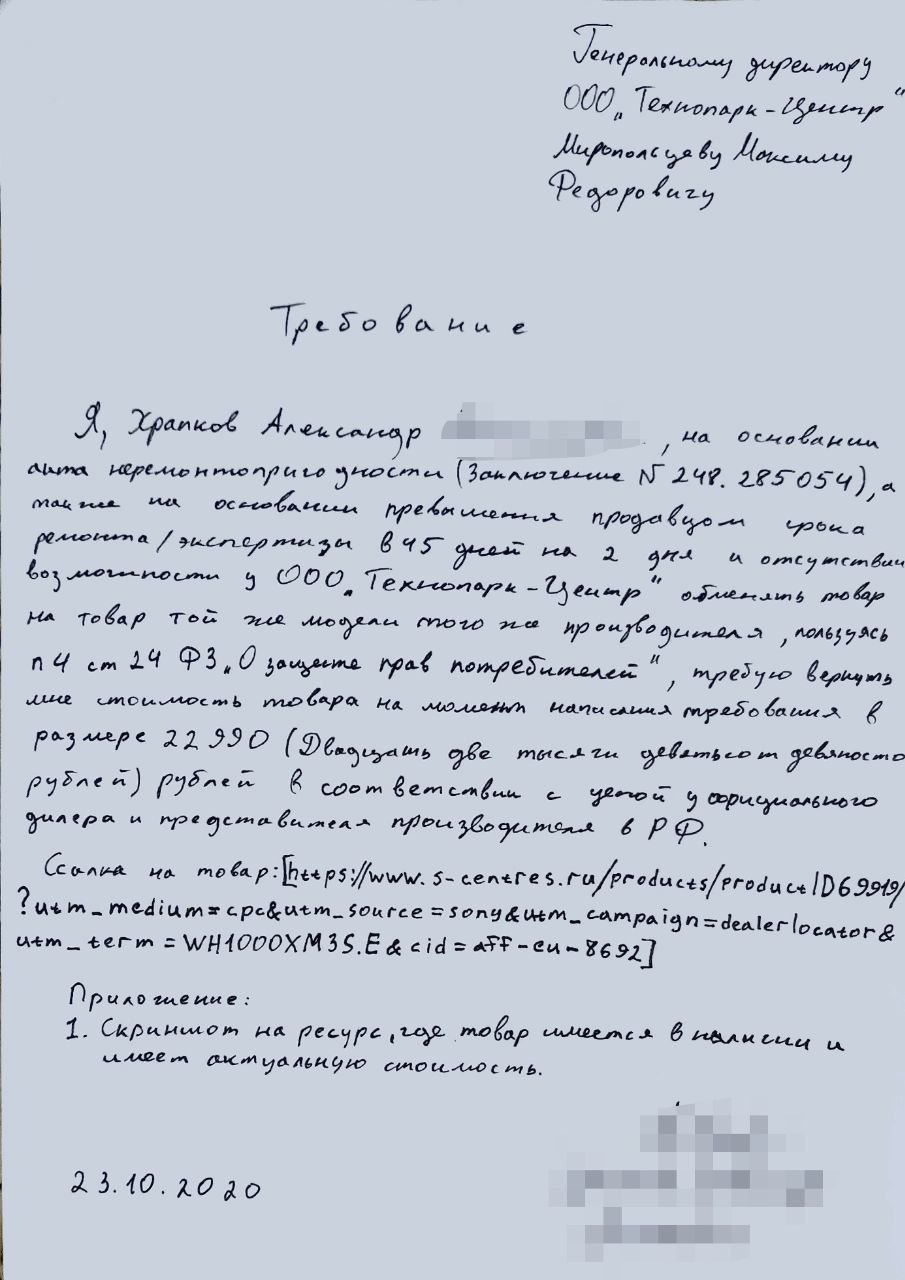 Генеральному директору
ООО „Технопарк-Центр"
Миропольцеву Максиму
Федоровичу
Требование
Я, Храпков Александр , на основании
акта неремонтопригодности (Заключение N 248.285054), а
также на основании превышения продавцом срока
ремонта/экспертизы в 45 дней на 2 дня и отсутствии
возможности у ООО „Технопарк-Центр" обменять товар
на товар той же модели того же производителя, пользуясь
п 4 ст 24 ФЗ „О защите прав потребителей", требую вернуть
мне стоимость товара на момент написания требования в
размере 22 990 (Двадцать две тысячи девятьсот девяносто
рублей) рублей в соответствии с ценой у официального
дилера и представителя производителя в РФ.
Ссылка на товар:[https://www.s-centres.ru/products/productID69919/
?utm_medium=cpc&utm_source=sony&utm_campaign=dealerlocator&
utm_term=WH1000XM3S.E&cid=aff-eu-8692]
Приложение:
1. Скриншот на ресурс, где товар имеется в наличии и
имеет актуальную стоимость.
23.10.2020